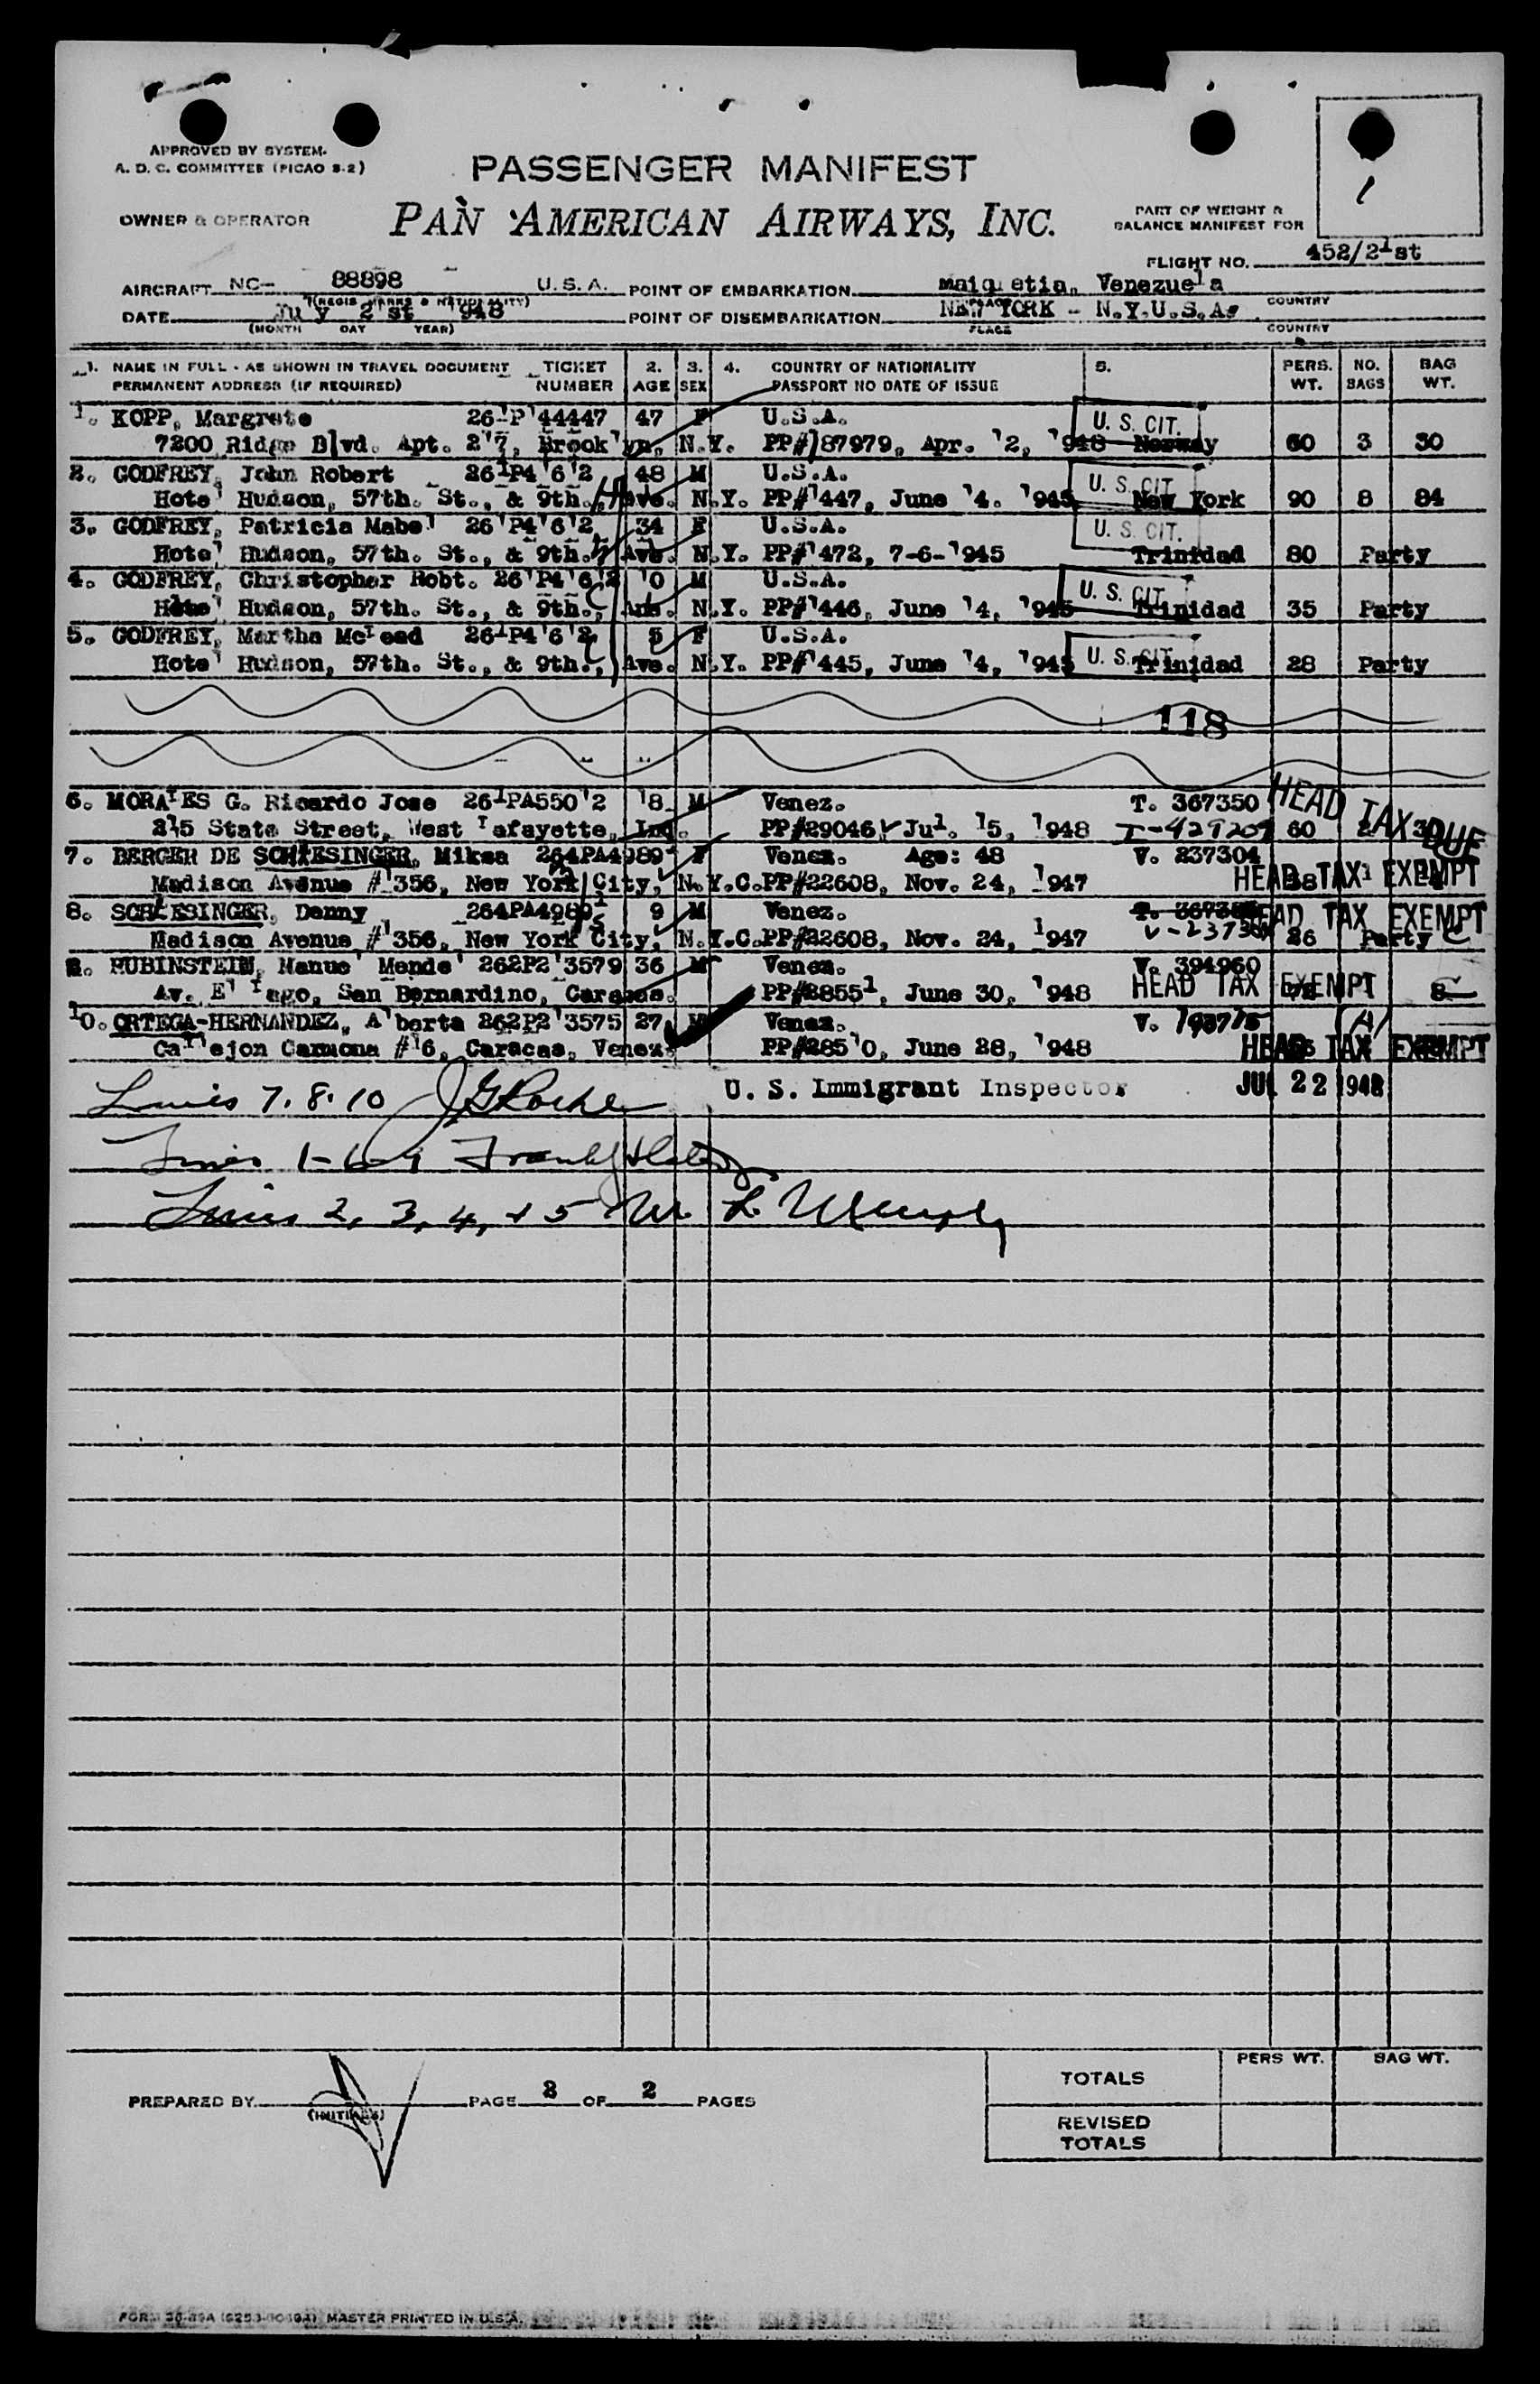 APPROVED BY SYSTEM.
A. D. C. COMMITTEE (PICAO 8-2)
PASSENGER MANIFEST
OWNER & OPERATOR
PAN AMERICAN AIRWAYS, INC.
PART OF WEIGHT &
BALANCE MANIFEST FOR
FLIGHT NO. 452/21st
AIRCRAFT NC- 88898 U.S.A. POINT OF EMBARKATION Maiquetia, Venezuela
(REGIS MARKS & NATIONALITY) PLACE COUNTRY
DATE July 21st 1948 POINT OF DISEMBARKATION NEW YORK - N.Y.U.S.A.
(MONTH DAY YEAR) PLACE COUNTRY
1. NAME IN FULL - AS SHOWN IN TRAVEL DOCUMENT TICKET 2. 3. 4. COUNTRY OF NATIONALITY 5. PERS. NO. BAG
PERMANENT ADDRESS (IF REQUIRED) NUMBER AGE SEX PASSPORT NO DATE OF ISSUE WT. BAGS WT.
1. KOPP, Margrete 261P144447 47 F U.S.A. U. S. CIT.
7200 Ridge Blvd. Apt. 217, Brooklyn, N.Y. PP#187979, Apr. 12, 1948 Norway 60 3 30
2. GODFREY, John Robert 261P41612 48 M U.S.A. U. S. CIT.
Hotel Hudson, 57th. St., & 9th. Ave. N.Y. PP#1447, June 14. 1945 New York 90 8 84
3. GODFREY, Patricia Mabel 261P41612 34 F U.S.A. U. S. CIT.
Hotel Hudson, 57th. St., & 9th. Ave. N.Y. PP#1472, 7-6-1945 Trinidad 80 Party
4. GODFREY, Christopher Robt. 261P41612 10 M U.S.A. U. S. CIT.
Hotel Hudson, 57th. St., & 9th., Ave. N.Y. PP#1446, June 14, 1945 Trinidad 35 Party
5. GODFREY, Martha McLead 261P41612 5 F U.S.A. U. S. CIT.
Hotel Hudson, 57th. St., & 9th., Ave. N.Y. PP#1445, June 14, 1945 Trinidad 28 Party
118
6. MORALES G. Ricardo Jose 261PA55012 18 M Venez. T. 367350 HEAD TAX DUE
215 State Street, West Lafayette, Ind. PP#29046 Jul. 15, 1948 T-429209 60 2
7. BERGER DE SCHLESINGER, Miksa 264PA4989 F Venez. Age: 48 V. 237304
Madison Avenue #1356, New York City, N.Y.C. PP#22608, Nov. 24, 1947 HEAD TAX EXEMPT
8. SCHLESINGER, Denny 264PA4989 9 M Venez. HEAD TAX EXEMPT
Madison Avenue #1356, New York City, N.Y.C. PP#22608, Nov. 24, 1947 26 Party
RUBINSTEIN, Manuel Mendel 262P213579 36 M Venez. V. 394960
Av. El Lago, San Bernardino, Caracas. PP#28551, June 30, 1948 HEAD TAX EXEMPT 8
10. ORTEGA-HERNANDEZ, Alberta 262P213575 27 Venez. V.
Callejon Carmona #16, Caracas, Venez. PP#28510, June 28, 1948 HEAD TAX EXEMPT
Lines 7. 8. 10 U. S. Immigrant Inspector JUL 22 1948
Lines 1-6-9
Lines 2, 3, 4, + 5
PREPARED BY (INITIALS) PAGE 2 OF 2 PAGES
PERS WT. BAG WT.
TOTALS
REVISED
TOTALS
MASTER PRINTED IN U.S.A.